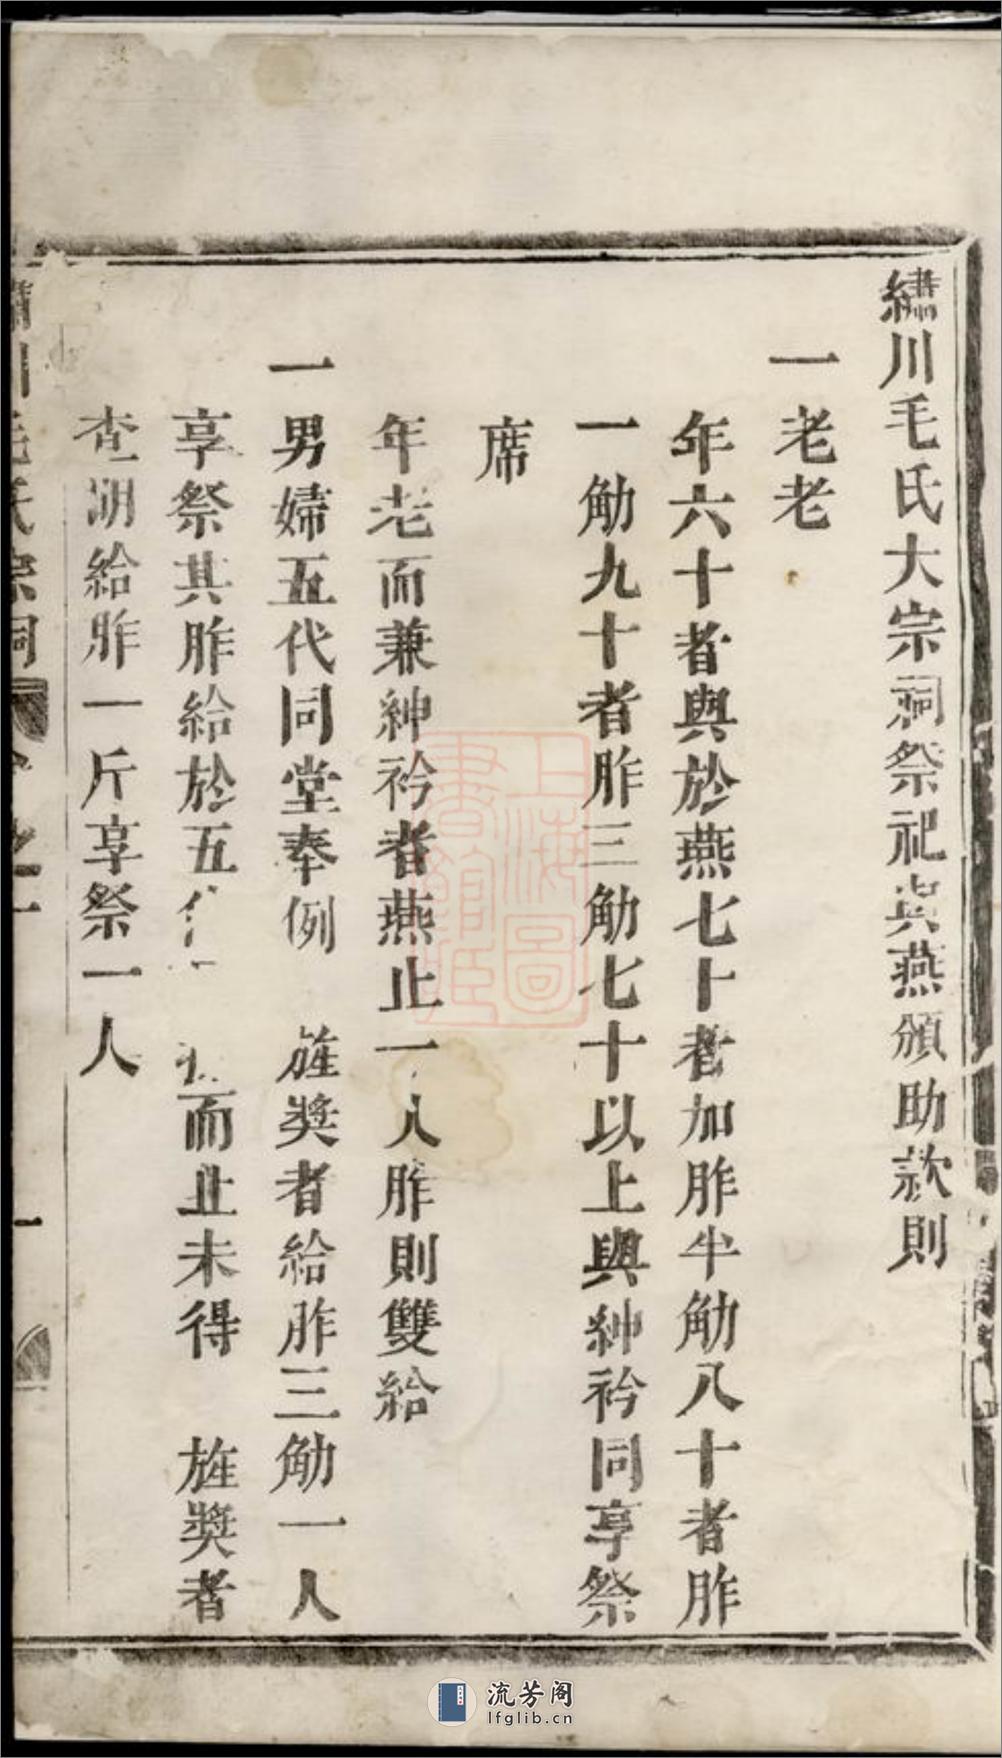 繡川毛氏大宗祠祭祀與燕頒助款則
一老老
年六十者與於燕七十者加胙半觔八十者胙
一觔九十者胙三觔七十以上與紳衿同享祭
席
年老而兼紳衿者燕止一人胙則雙給
一男婦五代同堂奉例 旌獎者給胙三觔一人
享祭其胙給於五代 而止未得 旌獎者
查明給胙一斤享祭一人
繡川毛氏宗祠
一
上海圖
書館藏
流芳阁
lfglib.cn